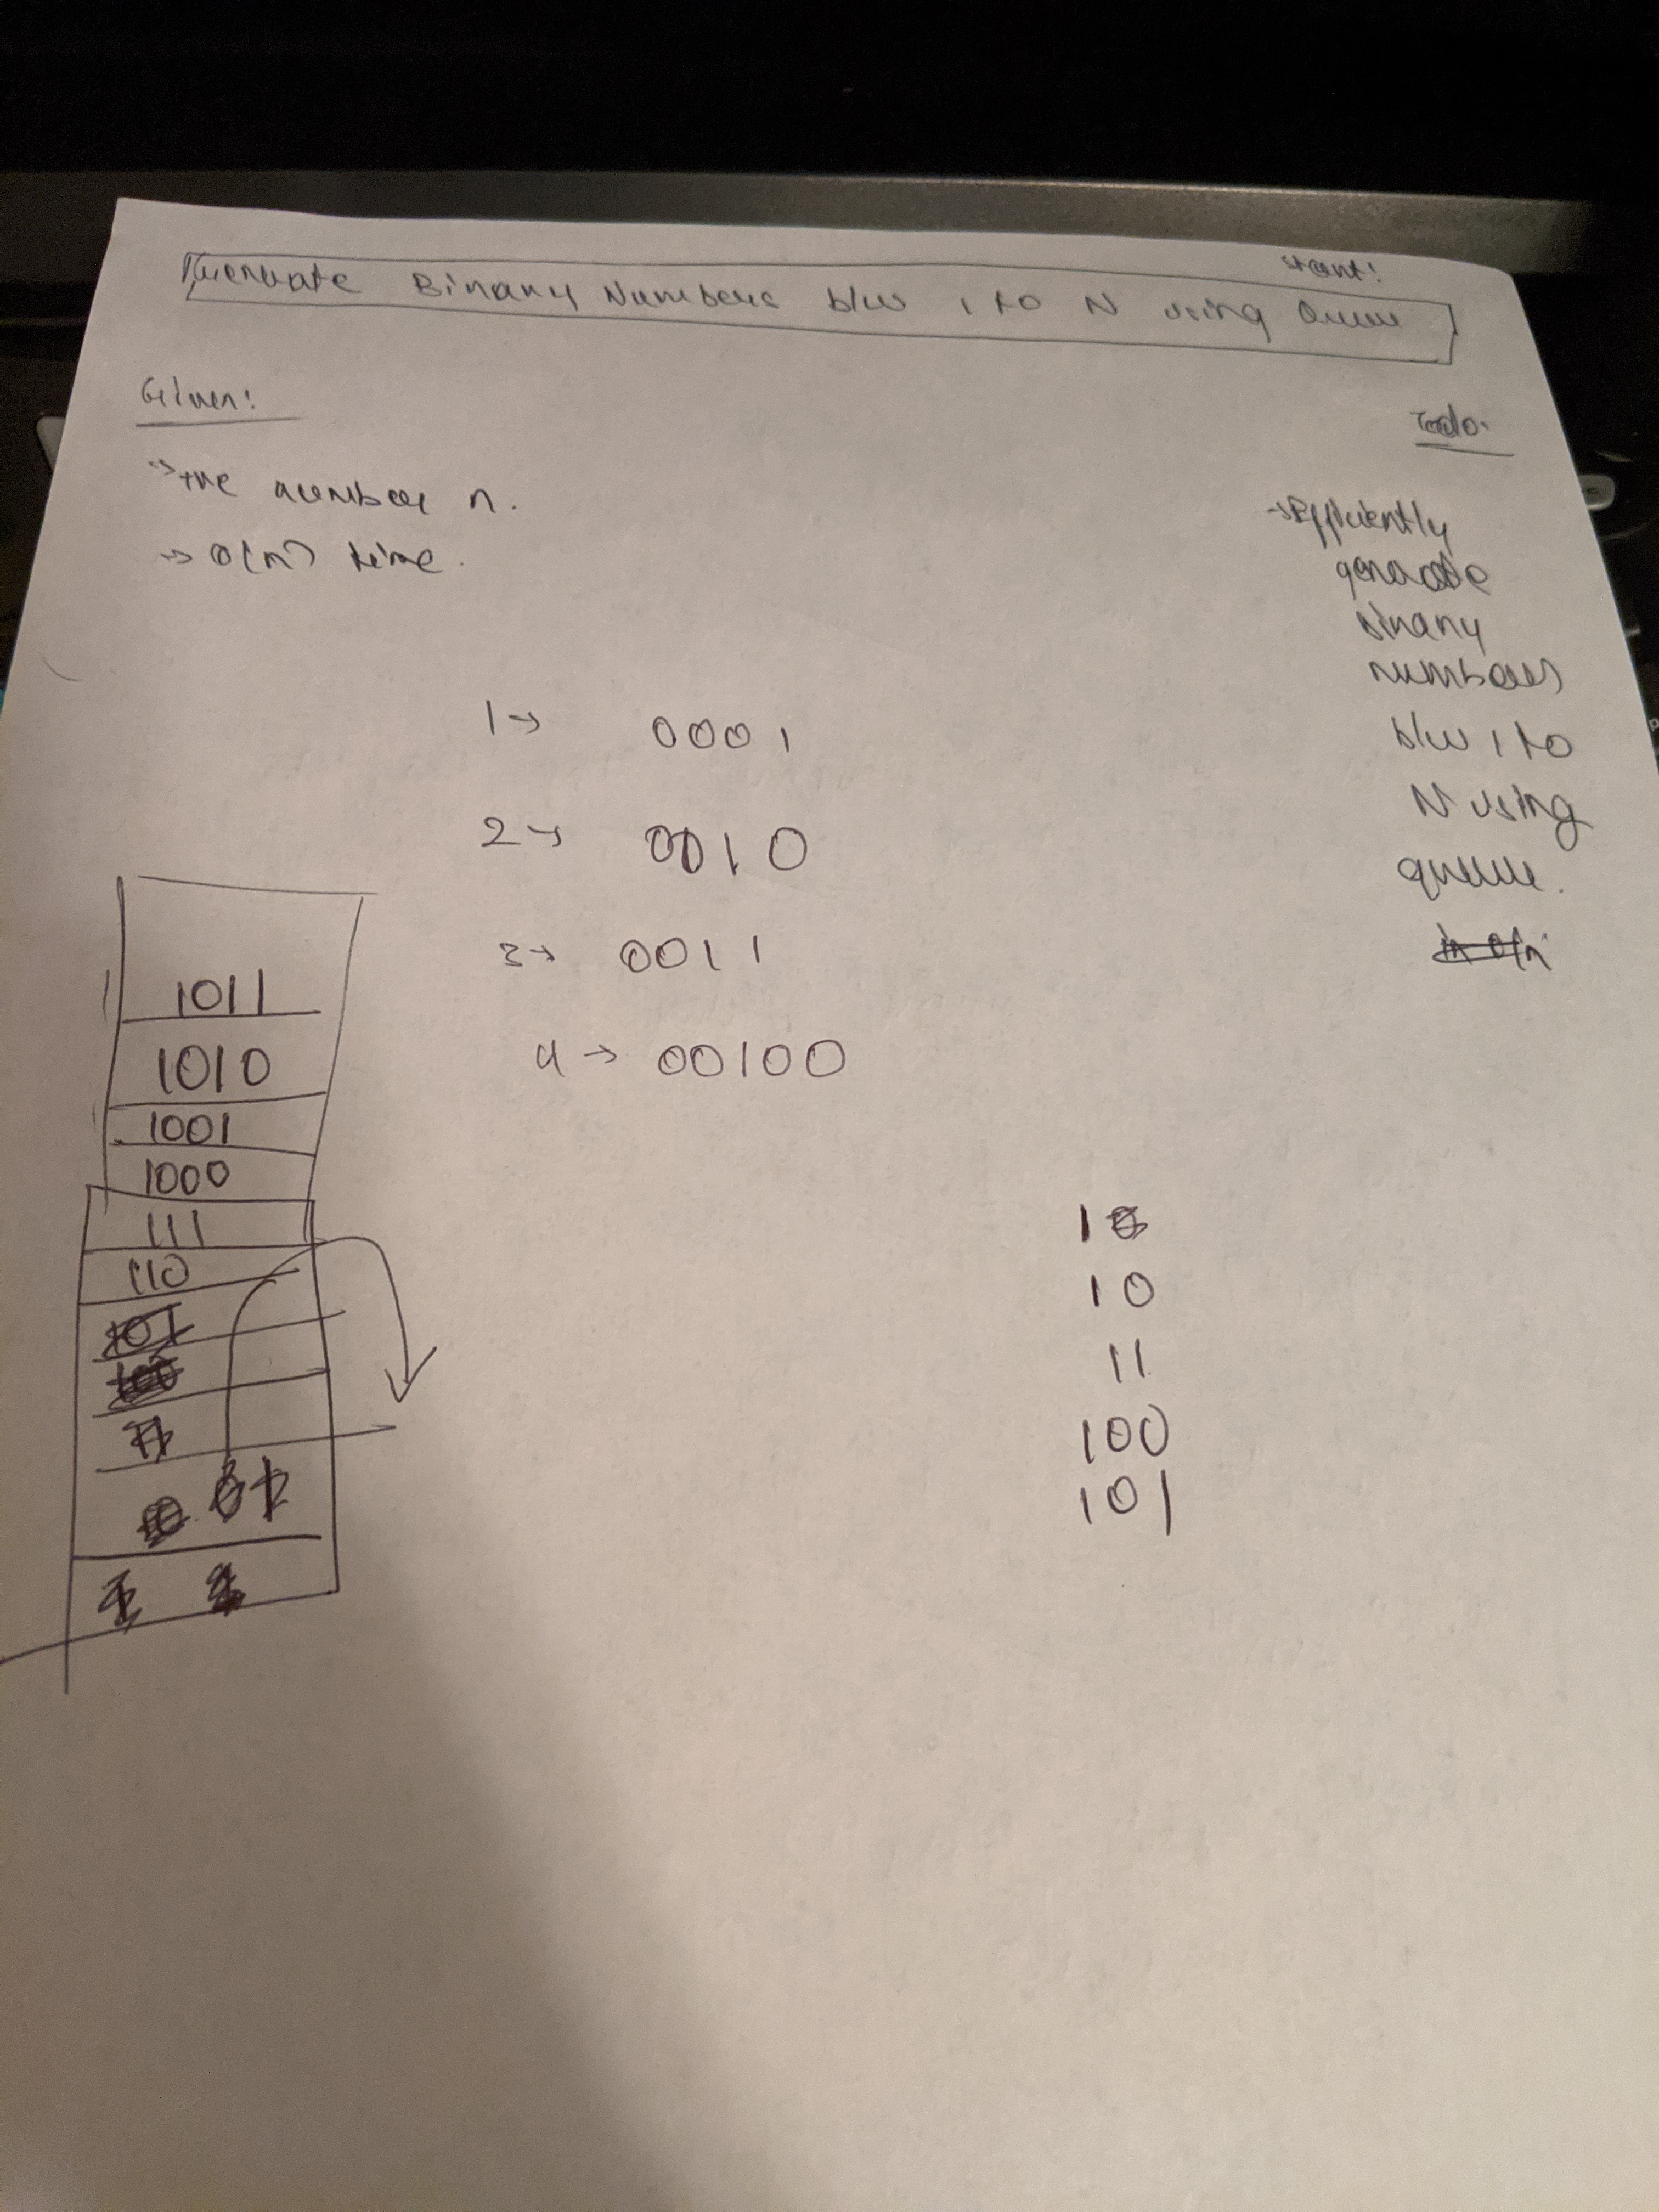 start!
Generate Binary Numbers b/w 1 to N using Queue
Given:
→ +ve number n.
→ O(n) time.
Todo:
→ Efficiently
generate
Binary
numbers
b/w 1 to
N using
queue.
in O(n
1 → 0001
2 → 0010
3 → 0011
4 → 00100
1011
1010
1001
1000
111
110
101
100
11
10
1
1
10
11
100
101